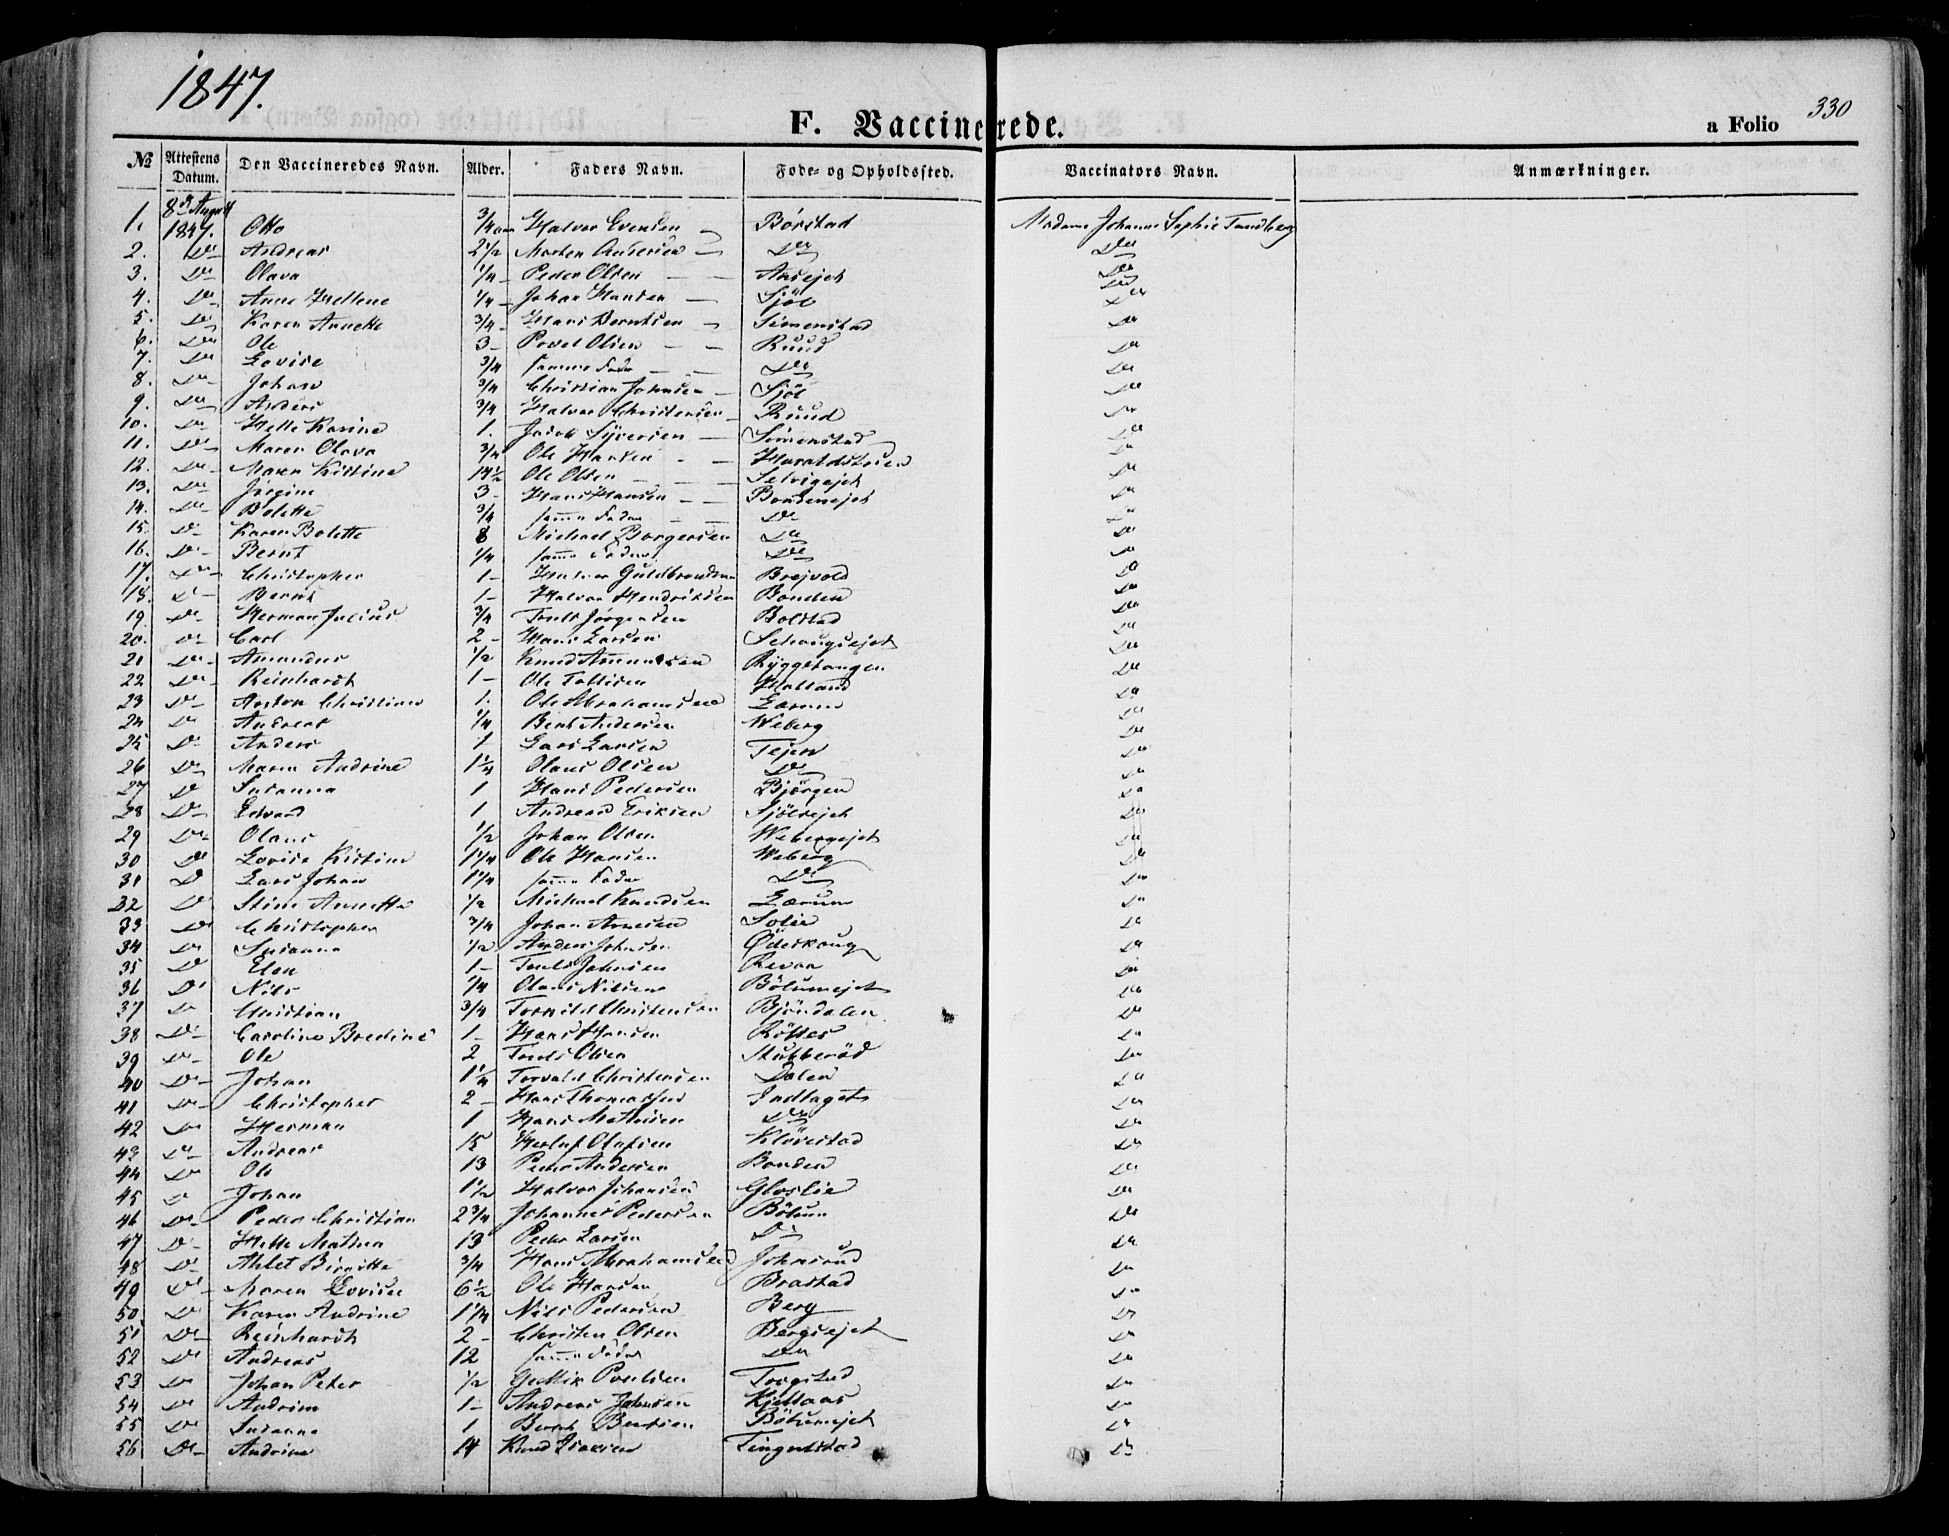 1847.
F. Vaccinerede.
a Folio 330
№ Attestens Datum. Den Vaccineredes Navn. Alder. Faders Navn. Føde- og Opholdssted. Vaccinators Navn. Anmærkninger.
1. 8de August 1847. Otto 3/4 Halvor Evensen Borstad Madame Johanne Sophie Tandberg
2. Do Andreas 2 1/2 Morten Andersen Do Do
3. Do Olava 1/4 Peder Olsen Do
4. Do Anne Hellene 1/4 Johan Hansen Sjöl Do
5. Do Karen Annette 3/4 Hans Berntsen Simenstad Do
6. Do Ole 3 Povel Olsen Ruud Do
7. Do Lovise 3/4 samme Fader Do Do
8. Do Johan 3/4 Christian Johnsen Sjöl Do
9. Do Anders 3/4 Halvor Christensen Ruud Do
10. Do Helle Karine 1. Jacob Syversen Simenstad Do
11. Do Maren Olava 3/4 Ole Hansen Do
12. Do Maren Kistine 14 1/2 Ole Olsen Selvigejet Do
13. Do Jörgine 3 Hans Hansen Bondenejet Do
14. Do Bolette 3/4 samme Fader Do Do
15. Do Karen Bolette 8 Michael Borgersen Do Do
16. Do Bernt 1/4 samme Fader Do Do
17. Do Christopher 1 Guldbrandsen Brejvold Do
18. Do Bernt 1 Halvor Hendriksen Bonden Do
19. Do Herman Julius 3/4 Truls Jörgensen Bolstad Do
20. Do Carl 2 Hans Larsen Schougsejet Do
21 Do Amandus 1/2 Knud Amundsen Ryggetangen Do
22 Do Reinhardt 1 Ole Tollisen Holland Do
23 Do Anton Christian 1. Ole Abrahamsen Lærum Do
24 Do Andreas 1/4 Bent Andersen Weberg Do
25 Do Anders 1 Lars Larsen Tejen Do
26 Do Maren Andrine 1 1/4 Olaus Olsen Do Do
27 Do Susanna 1 Hans Pedersen Björgen Do
28 Do Edvard 1 Andreas Eriksen Sjölsejet Do
29 Do Olaus 1/2 Johan Olsen Webergejet Do
30 Do Lovise Kistine 1 1/4 Ole Hansen Weberg Do
31 Do Lars Johan 1 1/4 samme Fader Do Do
32 Do Stine Annette 1/2 Michael Knudsen Lærum Do
33 Do Christopher 3/4 Johan Arnesen Solie Do
34 Do Susanna 1/2 Anders Johnsen Ödeskoug Do
35 Do Elen 1 Truls Johnsen Revaa Do
36 Do Nils 1/4 Olaus Nilsen Bölumejet Do
37 Do Christian 3/4 Torvild Christensen Bjöndalen Do
38 Do Caroline Bredine 1 Hans Hansen Röttes Do
39 Do Ole 2 Truls Olsen Stubberöd Do
40 Do Johan 1 1/4 Torvald Christensen Dalen Do
41 Do Christopher 2 Hans Thomassen Indlaget Do
42 Do Herman 1 Hans Mathisen Do Do
43 Do Andreas 15 Herluf Olafsen Klöverstad Do
44 Do Ole 13 Peder Andersen Bonden Do
45 Do Johan 1 1/2 Halvor Johansen Gloslie Do
46 Do Peder Christian 2 3/4 Johannes Pedersen Bölum Do
47 Do Helle Mathea 13 Peder Larsen Do Do
48 Do Ahlet Birgitte 3/4 Hans Abrahamsen Johnsrud Do
49 Do Maren Lovise 6 1/2 Ole Hansen Brastad Do
50 Do Karen Andrine 1 1/4 Nils Pedersen Berg Do
51 Do Reinhardt 2 Christen Olsen Bergsejet Do
52 Do Andreas 12 samme Fader Do Do
53 Do Johan Peter 1/2 Poulsen Torgstad Do
54 Do Andrine 1 Andreas Johnsen Kjellaas Do
55 Do Susanne 1 Bernt Bentsen Bölumejet Do
56 Do Andrine 14 Knud Isaksen Tingulstad Do